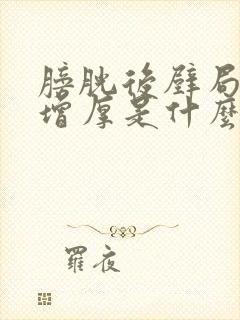 膀胱後壁局
增厚是什麼
羅夜